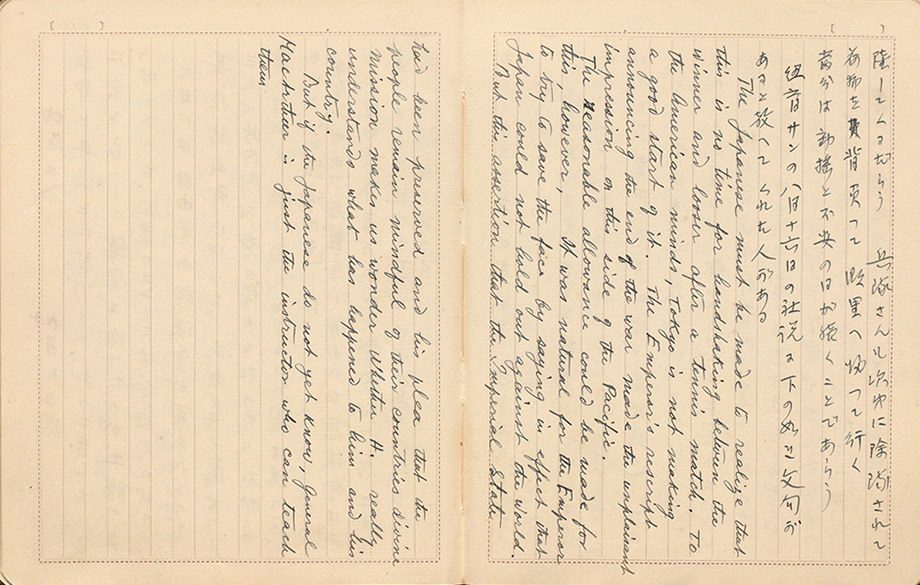 陸してくるだらう 兵隊さんも次々に除隊されて
荷物を背負つて郷里へ帰つて行く
當分は動揺と不安の日が続くことであらう
紐育サンの八月十六日の社説に下の如き文句が
あると教へてくれた人がある
The Japanese must be made to realize that
this is no time for handshaking between the
winner and looser after a tennis match. To
the American minds, Tokyo is not making
a good start of it. The Emperor's rescript
announcing the end of the war made the unpleasant
impression on this side of the Pacific.
The reasonable allowance could be made for
this, however. It was natural for the Emperor
to try to save the face by saying in effect that
Japan could not hold out against the world.
But this assertion that the Imperial State
had been preserved and his plea that the
people remain mindful of their countries divine
mission makes us wonder whether H. really
understands what has happened to him and his
country.
But if the Japanese do not yet know, General
MacArthur is just the instructor who can teach
them